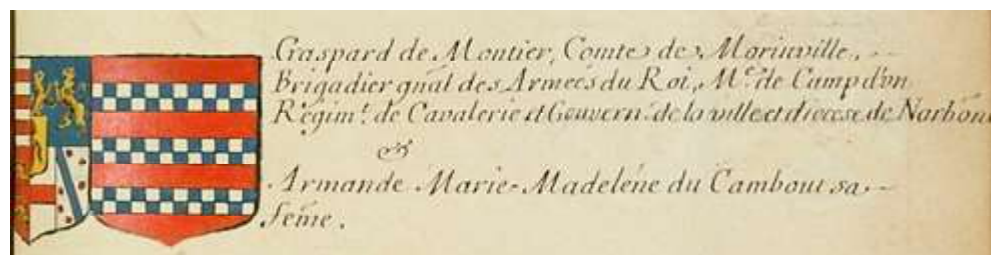 Gaspard de Montier, Comte de Morinville,
Brigadier gnãl des Armées du Roi, M.e de Camp d'vn
Régim.t de Cavalerie et Gouvern.r de la ville et diocese de Narbon
&
Armande Marie-Madeléne du Cambout sa
femẽ.